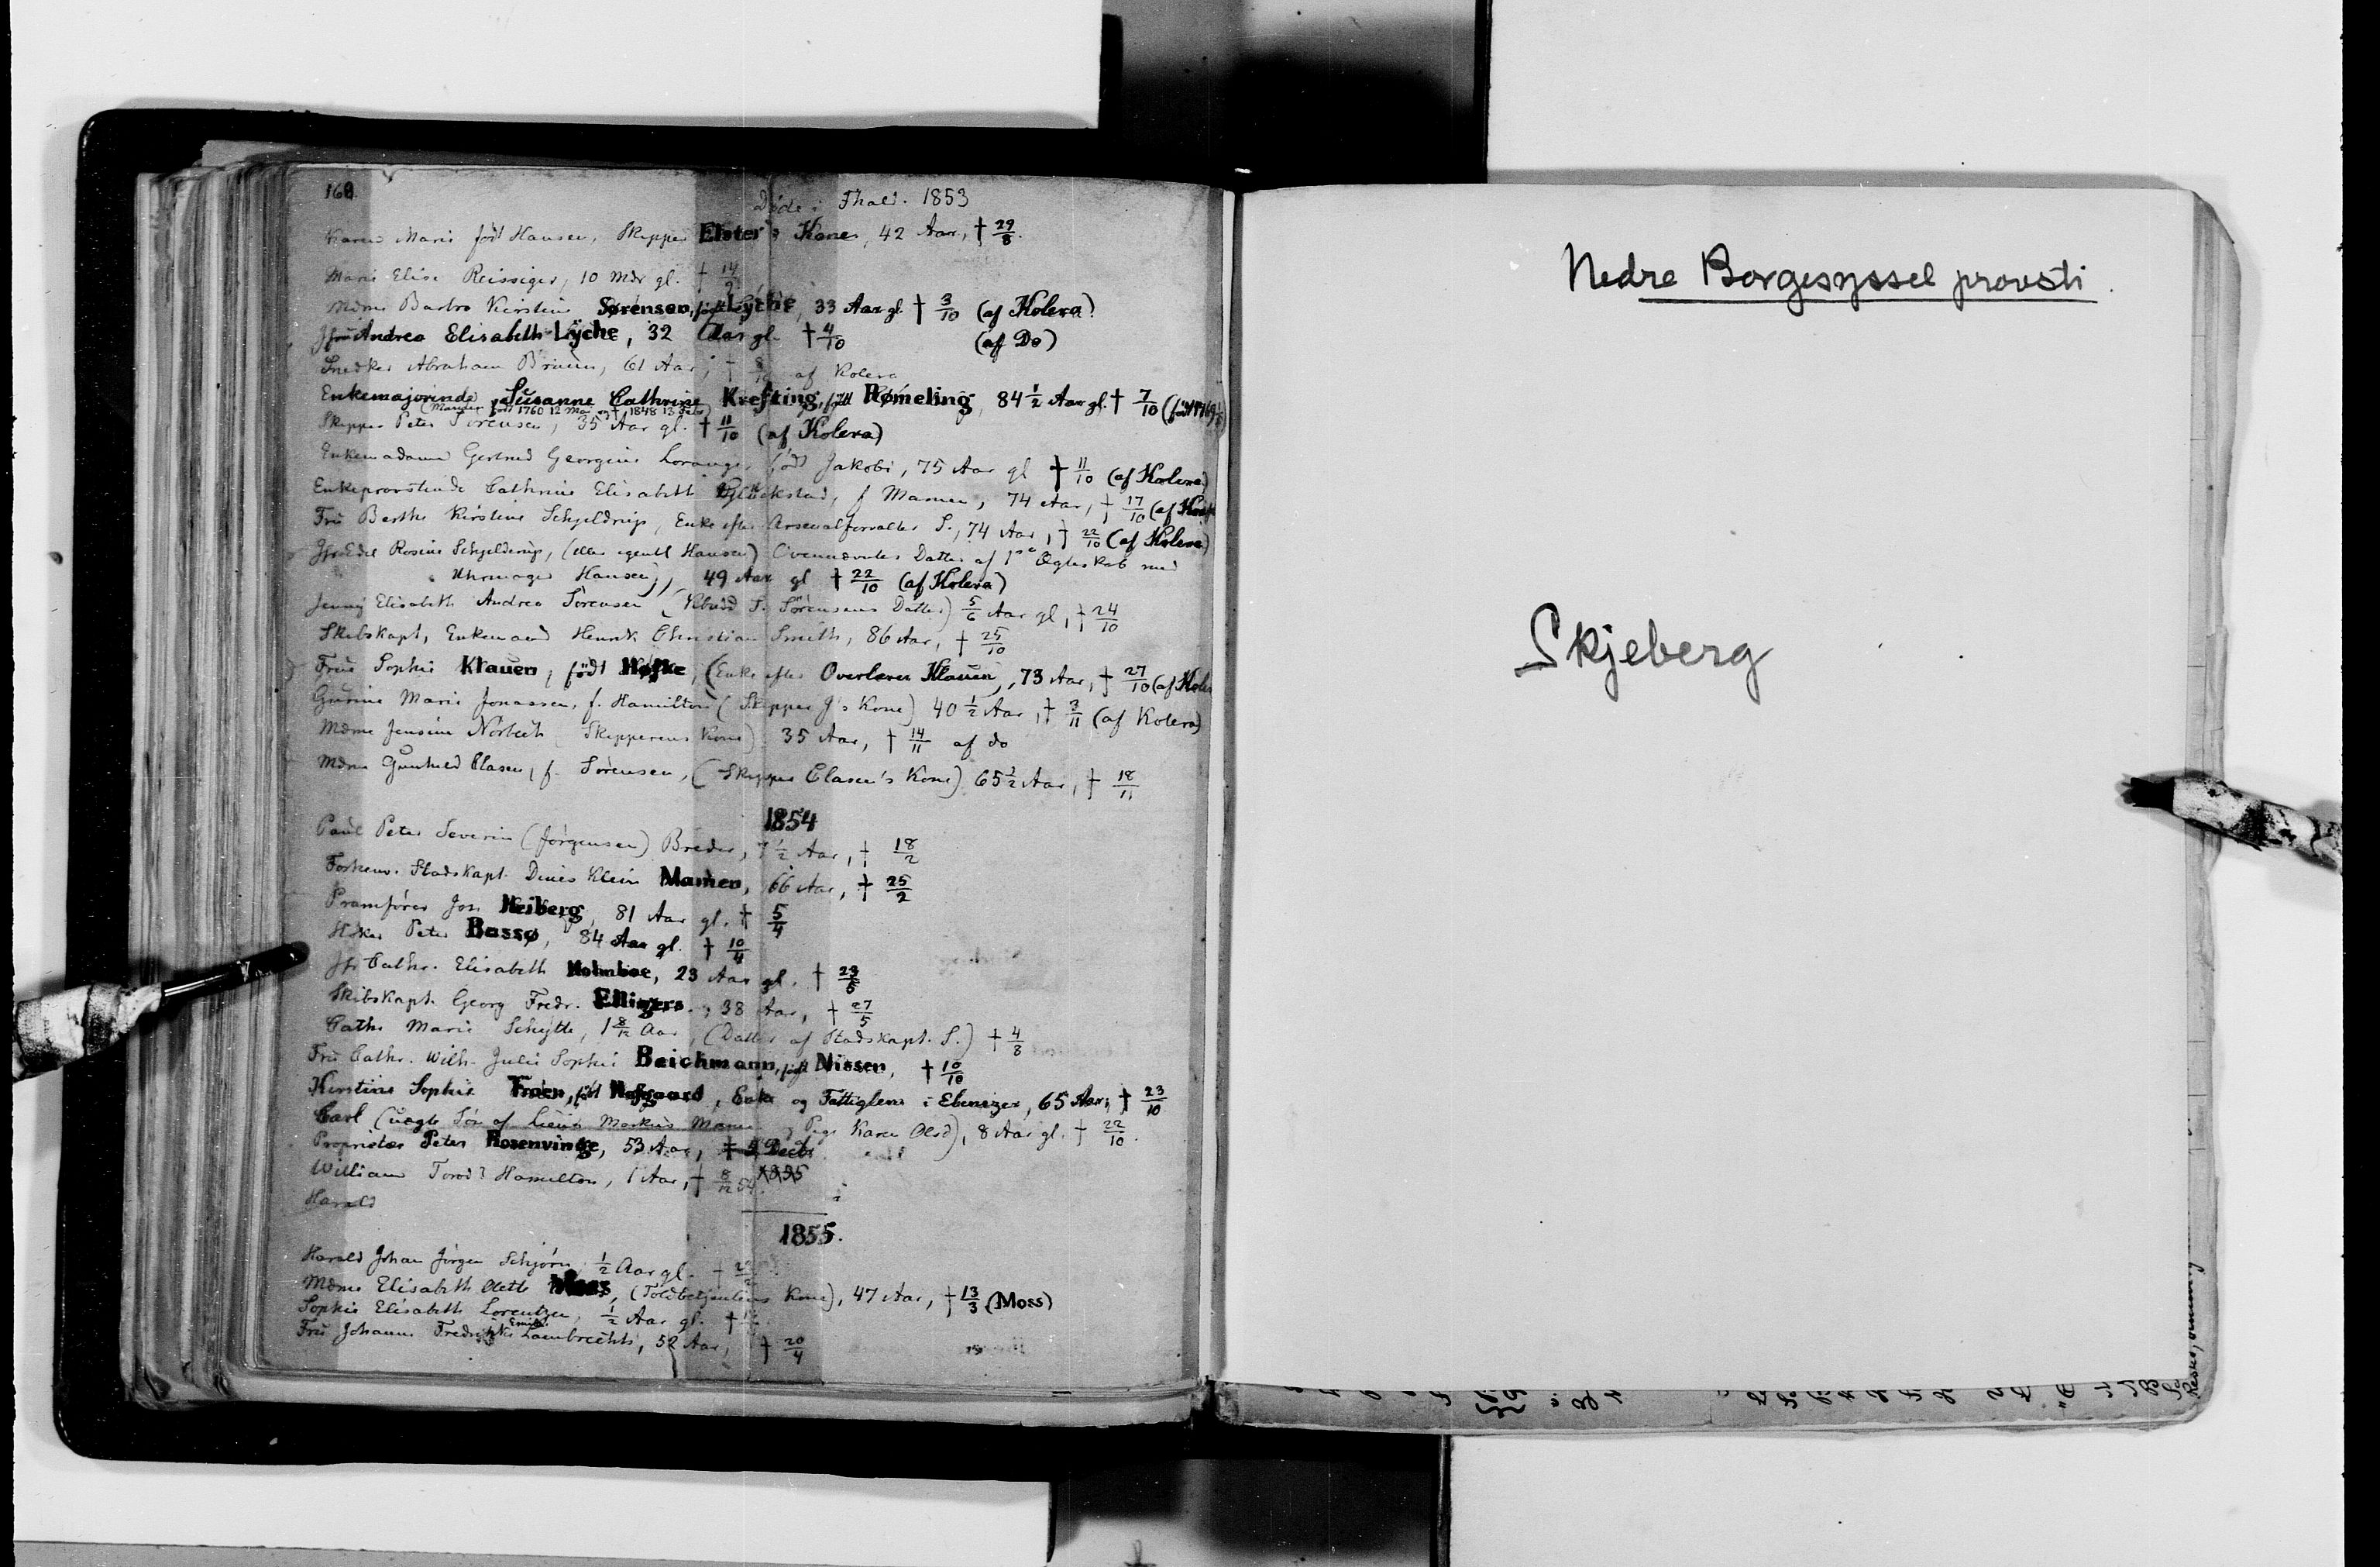 168.
Døde i Fhald. 1853
Karen Marie født Hansen, Skipper Elster's Kone, 42 Aar, † 29/8.
Marie Elise Reissiger, 10 Mdr gl. † 14/9
Mdme Barbro Kirstine Sørensen, født Lyche, 33 Aar gl. † 3/10 (af Kolera)
Jfru Andrea Elisabeth Lyche, 32 Aar gl. † 4/10 (af Do)
Snedker Abraham Bruun, 61 Aar, † 8/10 af Kolera
Enkemajorinde Susanne Cathrine Krefting, født Rømeling, 84 1/2 Aar gl. † 7/10
(Manden født 1760 12 Mai og † 1848 13 Febr)
Skipper Peter Sørensen, 35 Aar gl. † 11/10 (af Kolera)
Enkemadame Gertrud Georgine Lorange, født Jakobi, 75 Aar gl † 11/10 (af Kolera)
Enkeprovstinde Cathrine Elisabeth Glückstad, f Mamen, 74 Aar, † 17/10
Fru Berthe Kirstine Schjeldrup, Enke efter Arsenalforvalter S., 74 Aar, † 22/10 (af Kolera)
Jfr Edel Rosine Schjelderup, (eller egentl Hansen) Ovennævntes Datter af 1ste Ægteskab med
Uhrmager Hansen), 49 Aar gl † 22/10 (af Kolera)
Jenny Elisabeth Andrea Sørensen ( S. Sørensens Datter) 5/6 Aar gl, † 24/10
Skibskapt, Enkemand Henrik Christian Smith, 86 Aar, † 25/10
Frue Sophie Klauen, født Høfke, (Enke efter Overlærer Klauen), 73 Aar, † 27/10
Gurine Marie Jonassen, f. Hamilton (Skipper J's Kone) 40 1/2 Aar, † 3/11 (af Kolera)
Mdme Jensine Nørbech (Skipperens Kone) 35 Aar, † 14/11 af do
Mdme Gunhild Clasen, f. Sørensen, (Skipper Clasen's Kone) 65 1/2 Aar, † 18/11
1854
Paul Peter Severin (Jørgensen) Breder, 7 1/2 Aar, † 18/2
Forhenv. Stadskapt. Dines Klein Mamen, 66 Aar, † 25/2
Pramfører Jos Heiberg, 81 Aar gl. † 5/4
Høker Peter Bassø, 84 Aar gl. † 10/4
Jfr Cathr. Elisabeth Holmboe, 23 Aar gl. † 23/5
Skibskapt. Georg Fredr. Ellingers, 38 Aar, † 27/5
Cathr Marie Schytte, 1 8/12 Aar, (Datter af Stadskapt. S.) † 4/8
Fru Cathr. Wilh. Julie Sophie Beichmann, født Nissen, † 10/10
Kirstine Sophie Troen, født Hofgaard, Enke og Fattiglem i Ebenezer, 65 Aar, † 23/10
Carl (uægte Søn af Markus Mamen og Pige Karen Olsd), 8 Aar gl. † 22/10.
Proprietær Peter Rosenvinge, 53 Aar, † 9 Decbr
William Torod? Hamilton, 1 Aar, † 8/12 54.
Harald
1855.
Harald Johan Jørgen Schjørn, 1/2 Aar gl.
Mdme Elisabeth Olette Moss, (Toldbetjentens Kone), 47 Aar, † 13/3 (Moss)
Sophie Elisabeth Lorentzen, 1/2 Aar gl. †
Fru Johanne Fredrikke Emilie Lambrechts, 52 Aar, † 20/4
Nedre Borgesyssel provsti.
Skjeberg